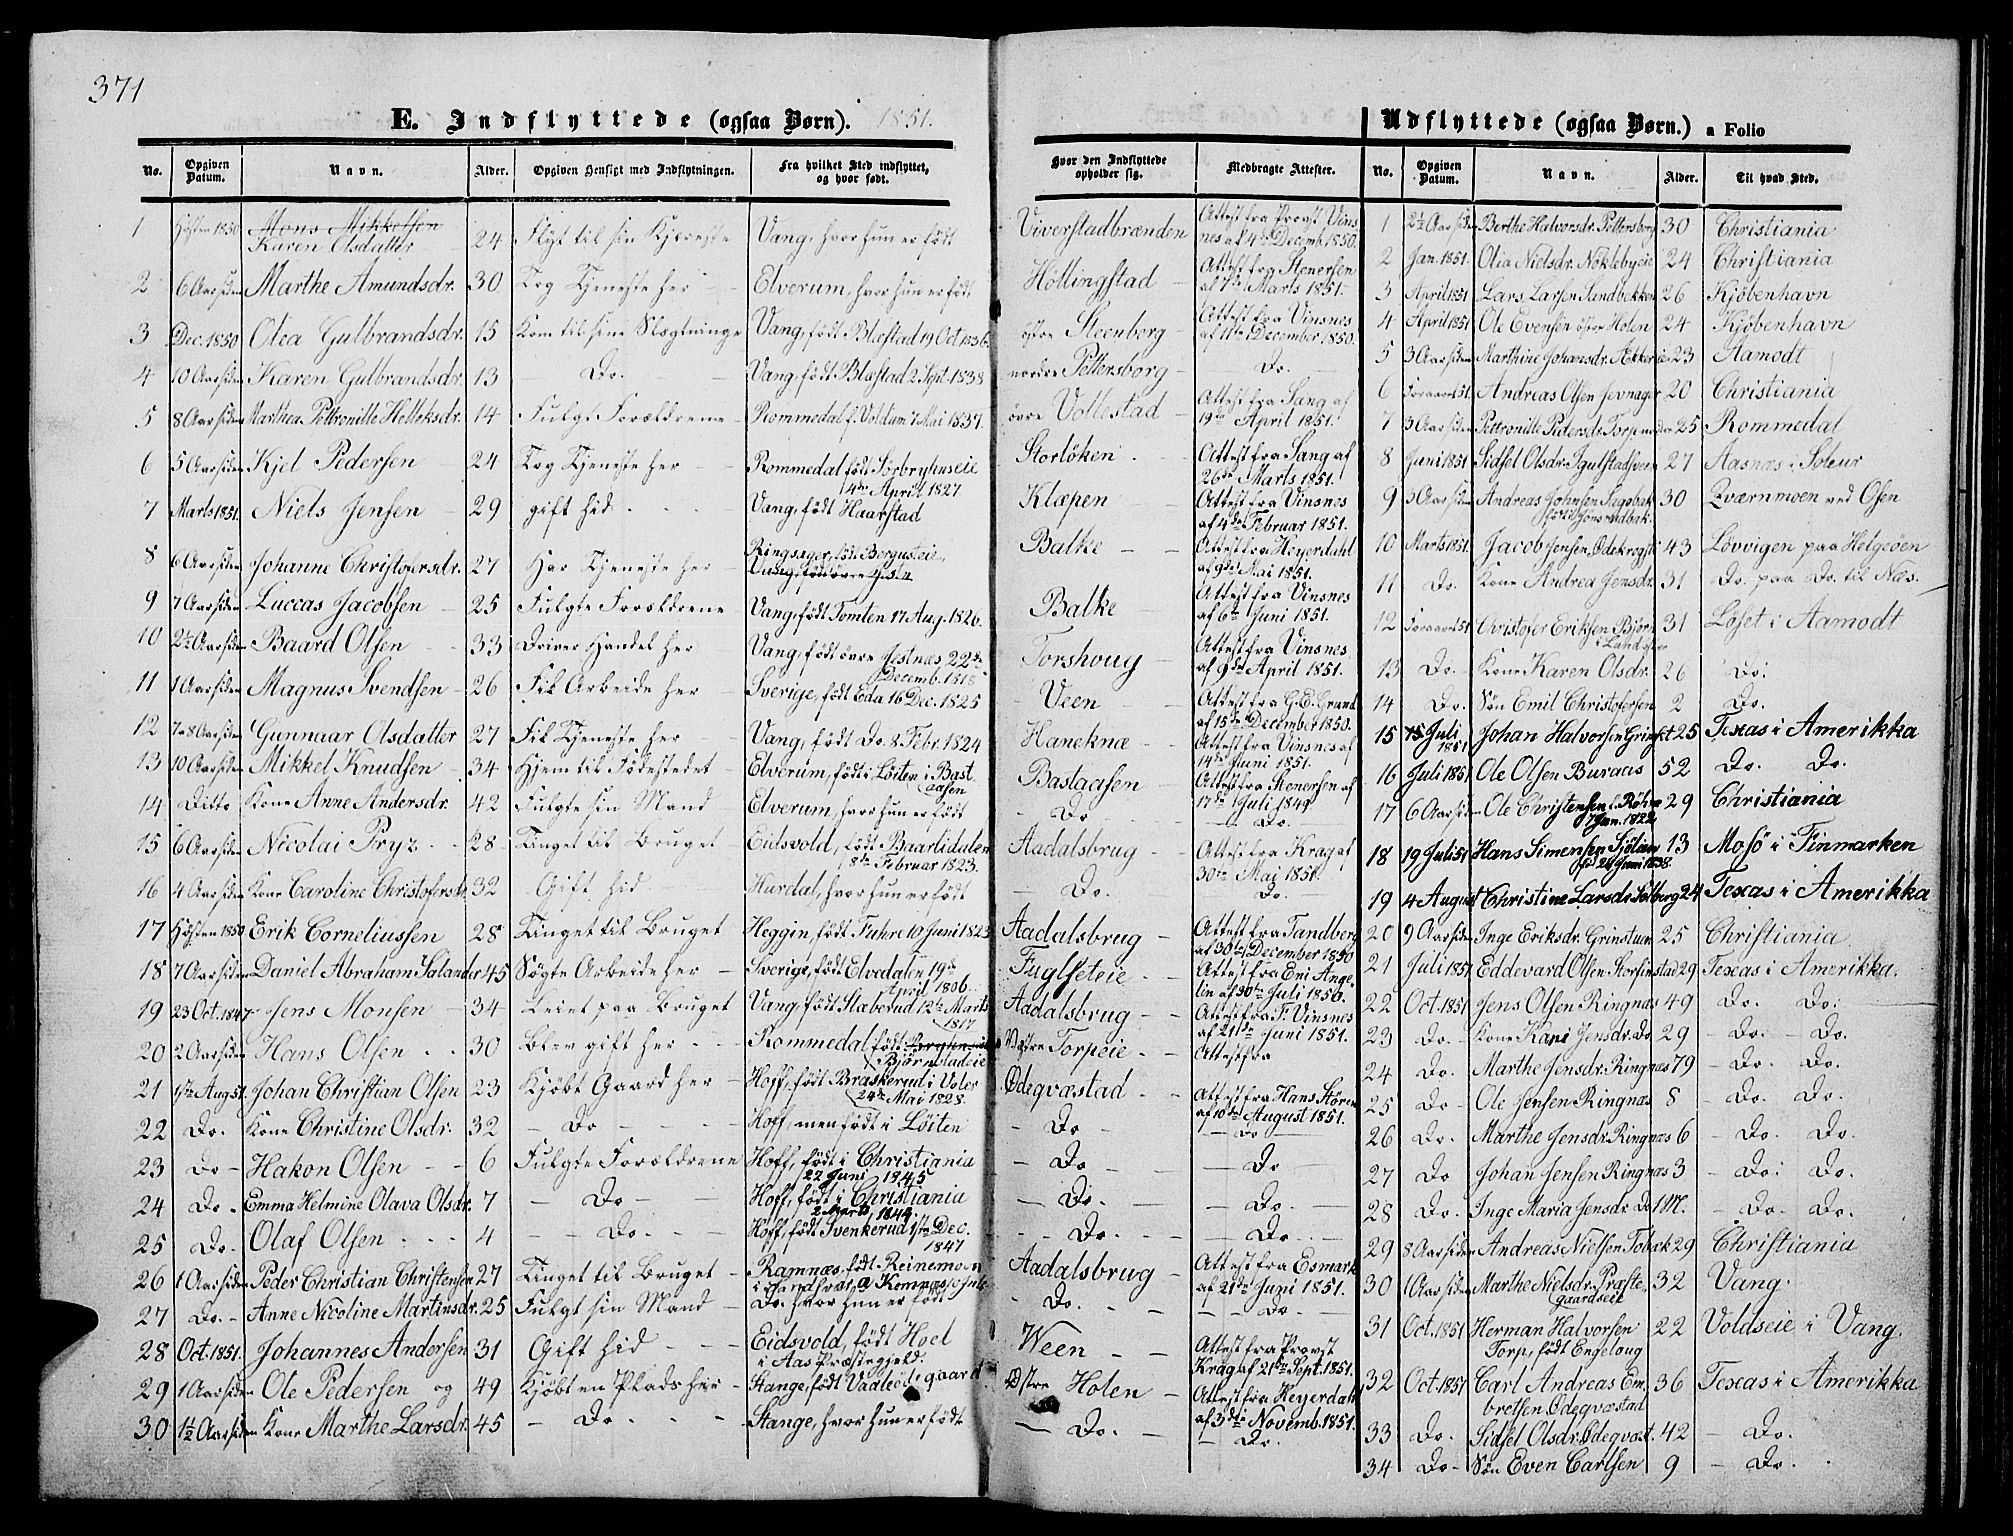 371
E. Indflyttede (ogsaa Børn). 1851.
No. Opgiven Datum. Navn. Alder. Opgiven Hensigt med Indflytningen. Fra hvilket Sted indflyttet, og hvor født.
1 Høsten 1850 Mons Mikkelsen
Karen Olsdatter 24 Flyt til sin Kjæreste Vang, hvor hun er født
2 6 Aar siden Marthe Amundsdr. 30 Tog Tjeneste her Elverum, hvor hun er født
3 Dec. 1850 Olea Gulbrandsdr. 15 Kom til sine Slægtninge Vang, født Blæstad 19 Oct 1836
4 10 Aar siden Karen Gulbrandsdr. 13 Do. Vang, født Blæstad 2 Sept. 1838
5 8 Aar siden Marthea Pettronille Helleksdr. 14 Fulgt Forældrene Rommedal f. Voldum 7 Mai 1837.
6 5 Aar siden Kjel Pedersen 24 Tog Tjeneste her Rommedal født Sørbryhnseie
4de April 1827
7 Marts 1851. Niels Jensen 29 gift hid Vang, født Haarstad
8 6 Aar siden Johanne Christofersdr. 27 Har Tjeneste her Ringsager, født Berguseie
Vang, født øvre Jestn
9 7 Aar siden Luccas Jacobsen 25 Fulgte Forældrene Vang, født Tomten 17 Aug. 1826.
10 2½ Aar siden Baard Olsen 33 Driver Handel her Vang, født øvre Jestnæs 22de
Decemb. 1818
11 1 Aar siden Magnus Svendsen 26 Fik Arbeide her Sverige, født Eda 16 Dec. 1825
12 7 a 8 Aar siden Gunnaar Olsdatter 27 Fik Tjeneste her Vang, født Do. 8 Febr. 1824
13 10 Aar siden Mikkel Knudsen 34 Hjem til Fødestedet Elverum, født i Løiten i Bast
aasen
14 Ditto Kone Anne Andersdr. 42 Fulgte sin Mand Elverum, hvor hun er født
15 6 Aar siden Nicolai Pryz 28 Tinget til Bruget Eidsvold, født Baarlidalen
8de Februar 1823.
16 4 Aar siden Kone Caroline Christofersdr. 32 Gift hid Hurdal, hvor hun er født
17 Høsten 1850 Erik Corneliussen 28 Tinget til Bruget Heggen, født Fuhre 10 Juni 1823
18 7 Aar siden Daniel Abraham Salander 45 Søgte Arbeide her Sverige, født Elvedalen 19de
April 1806.
19 23 Oct. 1847 Jens Monsen 34 Leiet paa Bruget Vang, født Staberud 12te Marts
1817
20 2 Aar siden Hans Olsen 30 Blev gift her Rommedal, født
Bjørnstadeie
21 1ste Aug 51. Johan Christian Olsen 23 Kjøbt Gaard her Hoff, født Braskerud i Voler
24de Mai 1828.
22 Do. Kone Christine Olsdr. 32 Do Hoff, men født i Løiten
23 Do Hakon Olsen 6 Fulgte Forældrene Hoff, født i Christiania
22 Juni 1845
24 Do. Emma Helmine Olava Olsdr. 7 Do Hoff, født i Christiania
2 Marts 1844.
25 Do. Olaf Olsen 4 Do. Hoff, født Svenkerud 1ste Dec.
1847
26 1 Aar siden Peder Christian Christensen 27 Tinget til Bruget Ramnæs, født Reinemoen
27 Do. Anne Nicoline Martinsdr. 25 Fulgt sin Mand Do. hvor hun er født
28 Oct. 1851. Johannes Andersen 31 Gift hid Eidsvold, født Hoel
i Aas Præstegjeld.
29 1 Aar siden Ole Pedersen og 49 Kjøbt en Plads her Stange, født Vadledegaard
30 1½ Aar siden Kone Marthe Larsdr. 45 Do. Stange, hvor hun er født
Hvor den Indflyttede opholder sig. Medbragte Attester.
Viverstadbrænden Attest fra Provst Vins
nes af 4de Decemb. 1850.
Høllingstad Attest fra Stenersen
af 7de Marts 1851.
østre Steenberg Attest fra Vinsnes
af 11te December 1850.
nordre Pettersborg Do.
øvre Vollestad Attest fra Sang af
19de April 1851.
Storløken Attest fra Sang af
26de Marts 1851.
Klæpen Attest fra Vinsnes
af 4de Februar 1851.
Balke Attest fra Heyerdahl
af 9de Mai 1851.
Balke Attest fra Vinsnes
af 6te Juni 1851.
Torshoug Attest fra Vinsnes
af 9de April 1851.
Veen Attest fra G. E. Grund
af 15de December 1850.
Haneknæ Attest fra Vinsnes af
14de Juni 1851.
Bastaasen Attest fra Stenersen af
17de Juli 1849
Do Do.
Aadalsbrug Attest fra Krag af
30te Mai 1851.
Do. Do.
Aadalsbrug Attest fra Tandberg
af 30te December 1850
Fuglseteie Attest fra Eni Ange
lin af 30te Juli 1850.
Aadalsbrug Attest fra F. Vinsnes
af 21de Juni 1851.
Vestre Torpeie Attest fra
Ødegvæstad Attest fra Hans Støren
af 10de August 1851.
Do Do
Do Do
Do. Do.
Do. Do.
Aadalsbrug Attest fra Esmark
af 21de Juni 1851.
Do. Do.
Ween Attest fra Provst
Krag af 21de Sept. 1851.
Østre Holen Attest fra Heyerdahl
af 3die Novemb. 1851.
Do. Do.
Udflyttede (ogsaa Børn.) a Folio
No. Opgiven Datum. Navn. Alder. Til hvad Sted.
1 2½ Aar siden Berthe Halvorsdr. Pettersborg 30 Christiania
2 Jan. 1851. Olia Nielsdr. Nøklebyeie 24 Christiania
3 April 1851 Lars Larsen Sandbekken 26 Kjøbenhavn
4 April 1851 Ole Evensen østre Holen 24 Kjøbenhavn
5 3 Aar siden Marthine Johansdr. Akkerie 23 Aamodt
6 Foraaret 51. Andreas Olsen Jevnager 20 Christiania
7 3 Aar siden Pettronille Pedersdr. Torp nedre 25 Rommedal
8 Juni 1851 Sidsel Olsdr. Igulstadsveen 27 Aasnæs i Soleur
9 3 Aar siden Andreas Johnsen 30 Qværnmoen ved Osen
10 Marts 1851. Jacob Jensen, Ødekrogst. 43 Løvvigen paa Helgeøen
11 Do. Kone Andrea Jensdr. 31 Do. paa Do. til Næs.
12 Foraaret 51 Christofer Eriksen Bjørn 31 Løset i Aamodt
13 Do. Kone Karen Olsdr. 26 Do.
14 Do. Søn Emil Christofersen 2 Do.
15 15 Juli 1851 Johan Halvorsen Grinst. 25 Texas i Amerikka
16 Juli 1851 Ole Olsen Buraas 52 Do. Do.
17 6 Aar siden Ole Christensen f. Røhne 29 Christiania
7 Jan. 1822
18 19 Juli 51 Hans Simensen Sjølum 13 Mosø i Finmarken
fød 24 Juni 1838
19 4 August Christine Larsdr. Solberg 24 Texas i Amerikka
20 9 Aar siden Inge Eriksdr. Grinstuen 25 Christiania
21 Juli 1851 Eddevard Olsen Storfinstad 29 Texas i Amerikka.
22 Oct. 1851 Jens Olsen Ringnæs 49 Do. Do.
23 Do. Kone Kari Jensdr. Do 29 Do. Do.
24 Do. Marthe Jensdr. Ringnæs 79 Do. Do.
25 Do Ole Jensen Ringnæs 8 Do. Do.
26 Do. Marthe Jensdr. Ringnæs 6 Do. Do.
27 Do Johan Jensen Ringnæs 3 Do. Do.
28 Do. Inge Maria Jensdr. Do 1 M. Do. Do.
29 8 Aar siden Andreas Nielsen Tobak 29 Christiania
30 1 Aar siden Marthe Nielsdr. Præste- 32 Vang.
gaardseie
31 Oct. 1851 Herman Halvorsen 22 Voldseie i Vang.
Torp, født Engeloug
32 Oct. 1851 Carl Andreas Em 36 Texas i Amerikka
bretsen Ødegvæstad
33 Do. Sidsel Olsdr. Ødegvæst. 42 Do.
34 Do Søn Even Carlsen 9 Do.